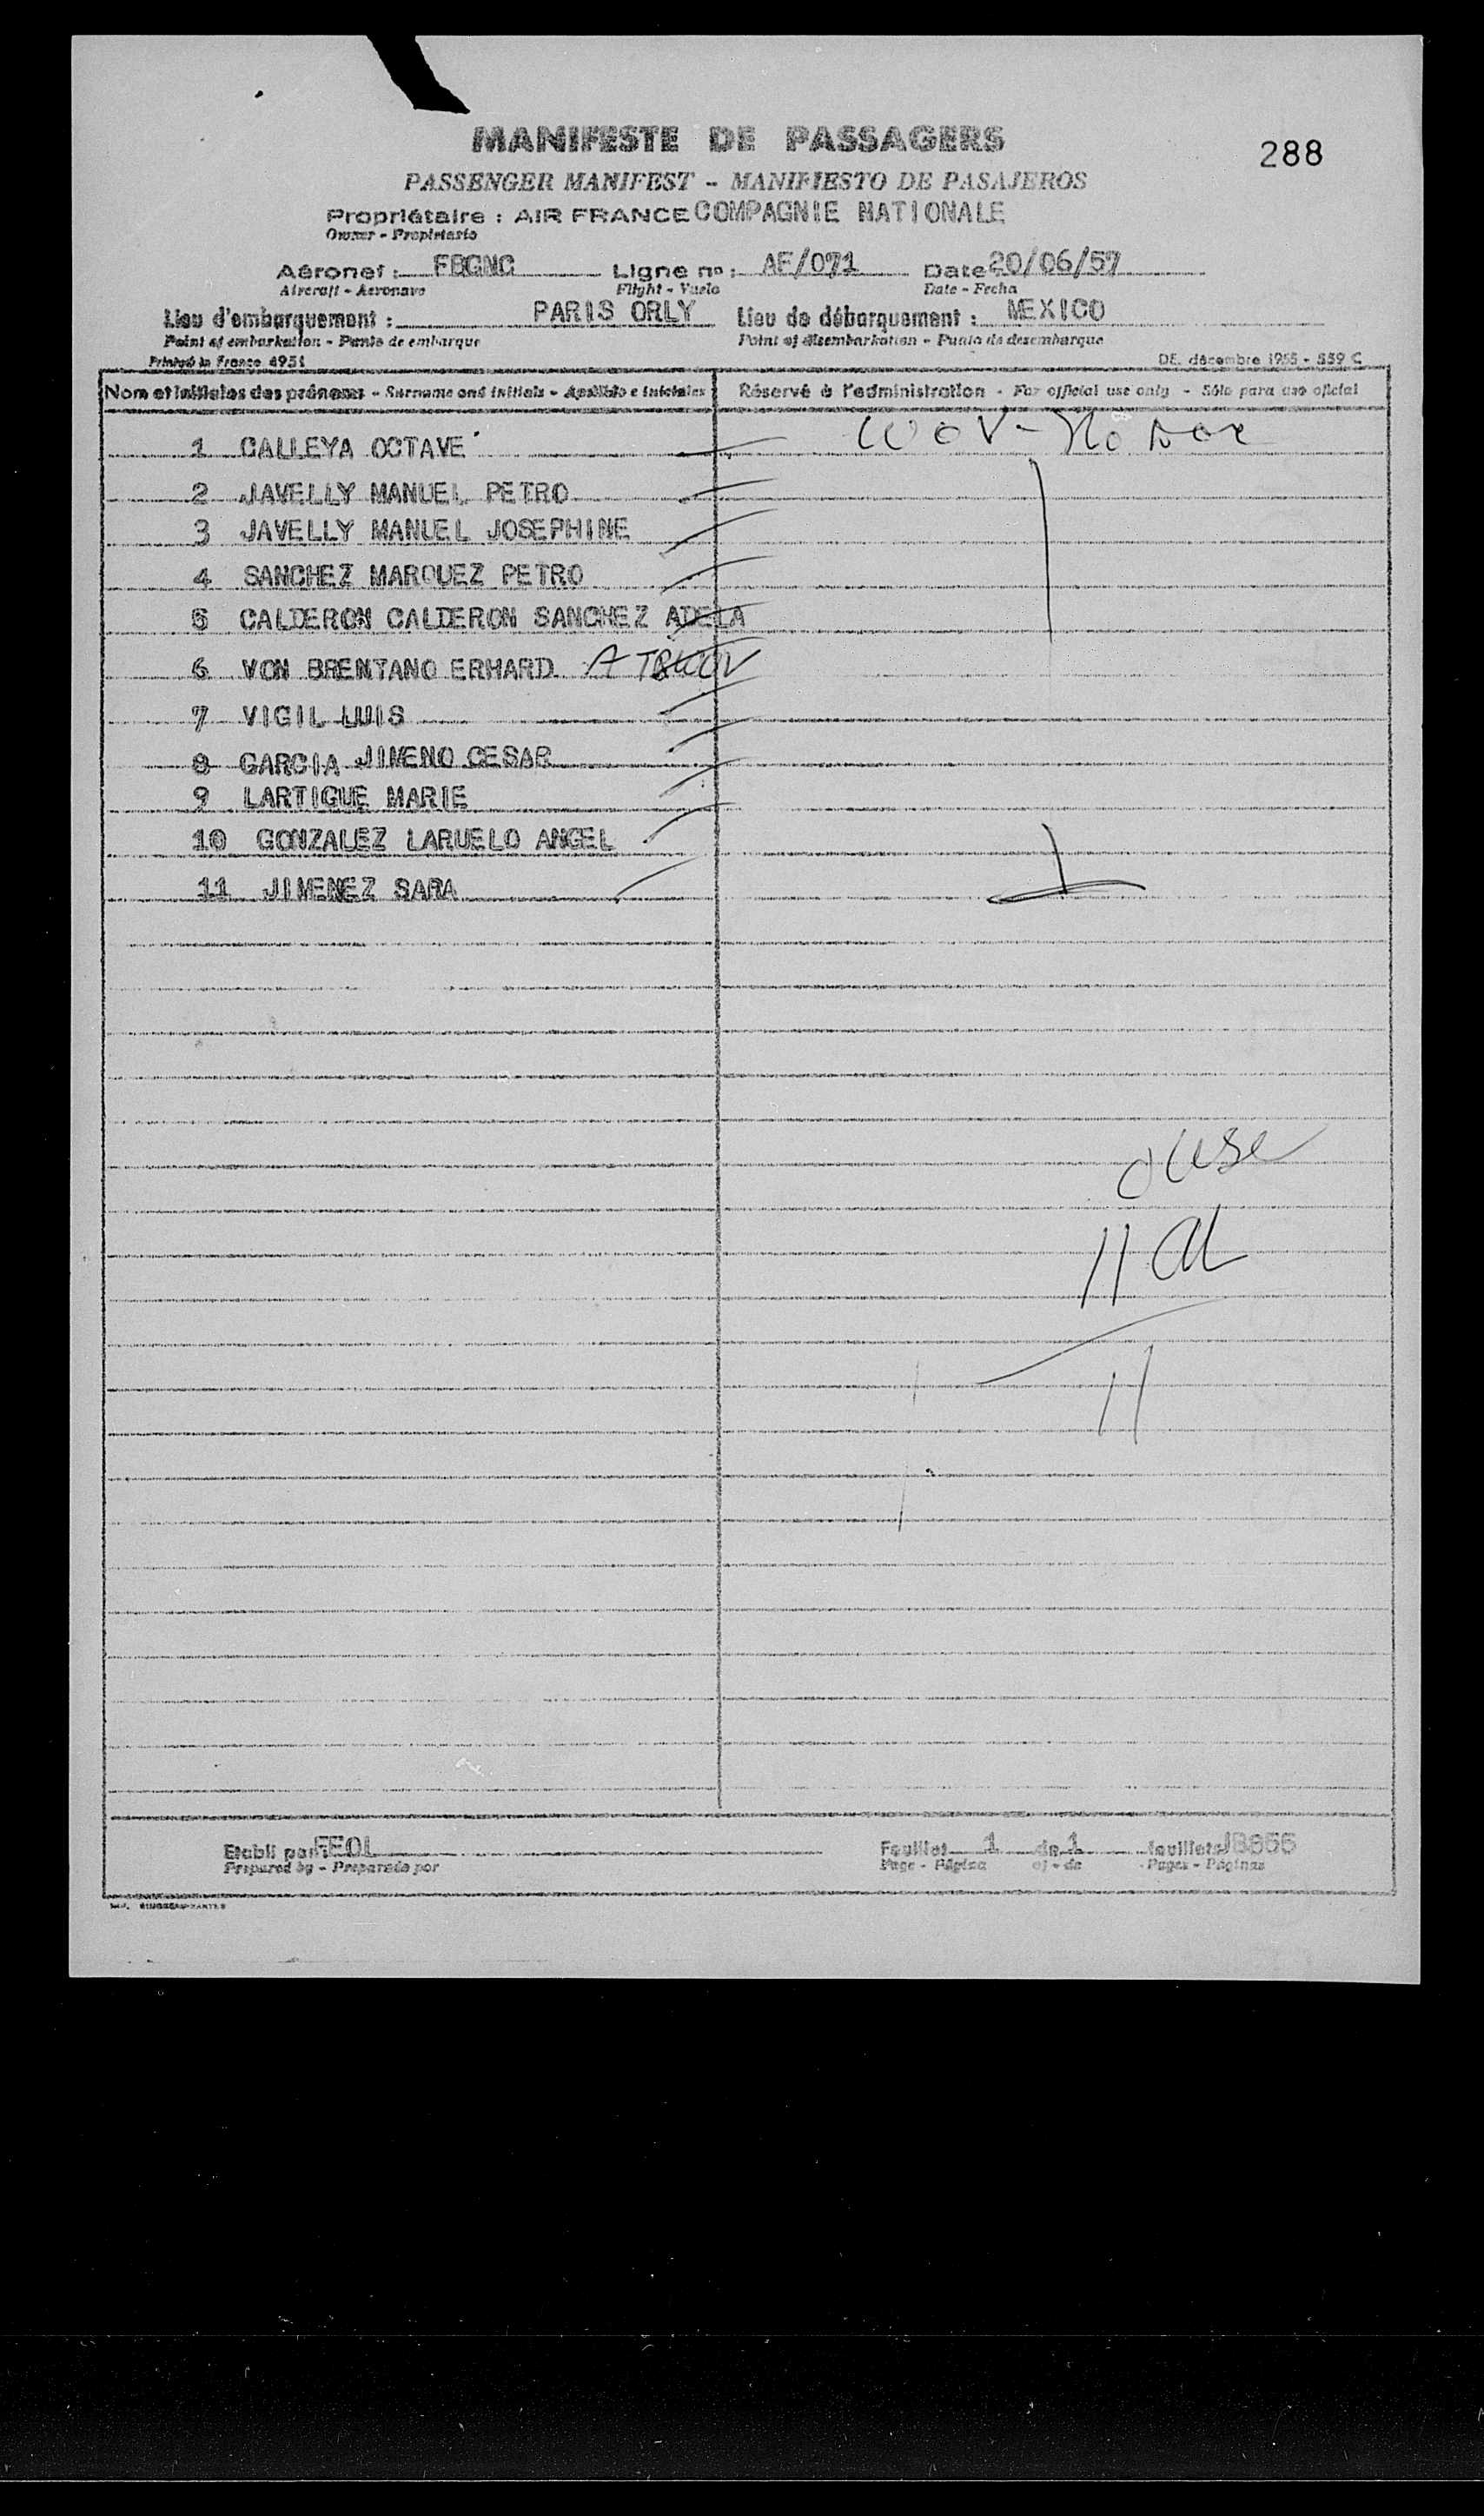 MANIFESTE DE PASSAGERS
288
PASSENGER MANIFEST - MANIFIESTO DE PASAJEROS
Propriétaire : AIR FRANCE COMPAGNIE NATIONALE
Owner - Propietario
Aéronef : FBGNC Ligne no : AF/071 Date 20/06/57
Aircraft - Aeronave Flight - Vuelo Date - Fecha
Lieu d'embarquement : PARIS ORLY Lieu de débarquement : MEXICO
Point of embarkation - Punto de embarque Point of disembarkation - Punto de desembarque
Printed in France 4951 DE. décembre 1955 - 559 C
Nom et initiales des prénoms - Surname and initials - Apellido e iniciales Réservé à l'administration - For official use only - Sólo para uso oficial
1 CALLEYA OCTAVE WOV - No
2 JAVELLY MANUEL PETRO
3 JAVELLY MANUEL JOSEPHINE
4 SANCHEZ MARQUEZ PETRO
5 CALDERON CALDERON SANCHEZ ADELA
6 VON BRENTANO ERHARD
7 VIGIL LUIS
8 GARCIA JIMENO CESAR
9 LARTIGUE MARIE
10 GONZALEZ LARUELO ANGEL
11 JIMENEZ SARA
11
11
Etabli par FEOL Feuillet 1 de 1 feuillets JB656
Prepared by - Preparado por Page - Página of - de Pages - Páginas